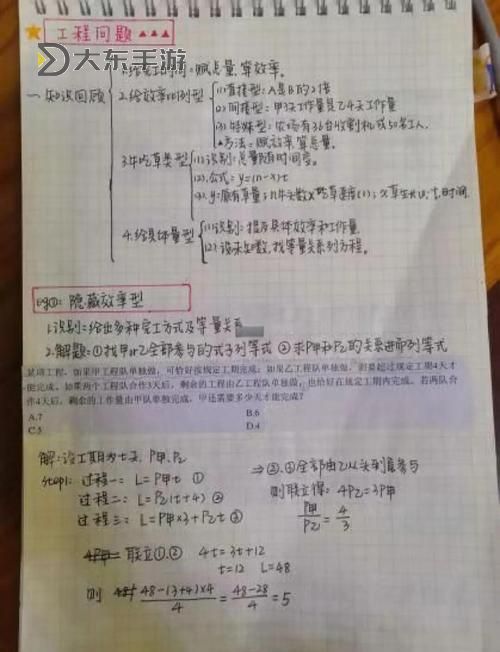 工程问题
大东手游
1.给完工时间:赋总量,算效率。
一.知识回顾
2.给效率比例型
(1)直接型:A是B的2倍
(2)间接型:甲3天工作量是乙4天工作量
(3)特殊型:农场有36台收割机或50名工人.
方法:赋效率算总量.
3.牛吃草类型
(1)识别:总量随时间变。
(2)公式:y=(n-x)t
(3)y:原有草量;n:牛头数×吃草速度(1);x:草生长速度;t:时间.
4.给具体量型
(1)识别:提及具体效率和工作量
(2)设未知数,找等量关系列方程。
eg①:隐藏效率型
1.识别:给出多种完工方式及等量关系
2.解题:①找甲or乙全部参与的式子列等式 ②求P甲和P乙的关系进而列等式
某项工程,如果甲工程队单独做,可恰好按规定工期完成;如果乙工程队单独做,则要超过规定工期4天才
能完成。如果两个工程队合作3天后,剩余的工程由乙工程队单独做,也恰好在规定工期内完成。若两队合
作4天后,剩余的工作量由甲队单独完成,甲还需要多少天才能完成?
A.7 B.6
C.5 D.4
解:设工期为t天,P甲.P乙
step1: 过程一: L=P甲t ①
过程二: L=P乙(t+4) ②
过程三: L=P甲×3+P乙t ③
联立①,② 4t=3t+12
t=12 L=48
则 48-(3+4)×4/4 = 48-28/4 = 5
⇒②,③全部由乙从头到尾参与
则联立得: 4P乙=3P甲
P甲/P乙 = 4/3